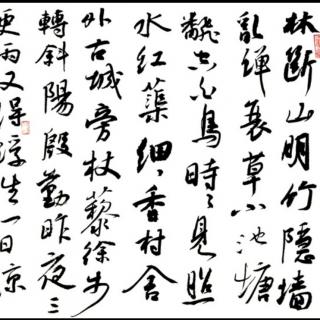 林断山明竹隐墙
乱蝉衰草小池塘
翻空白鸟時々見照
水紅蕖細々香村舍
外古城旁杖藜徐步
轉斜陽殷勤昨夜三
更雨又得浮生一日凉